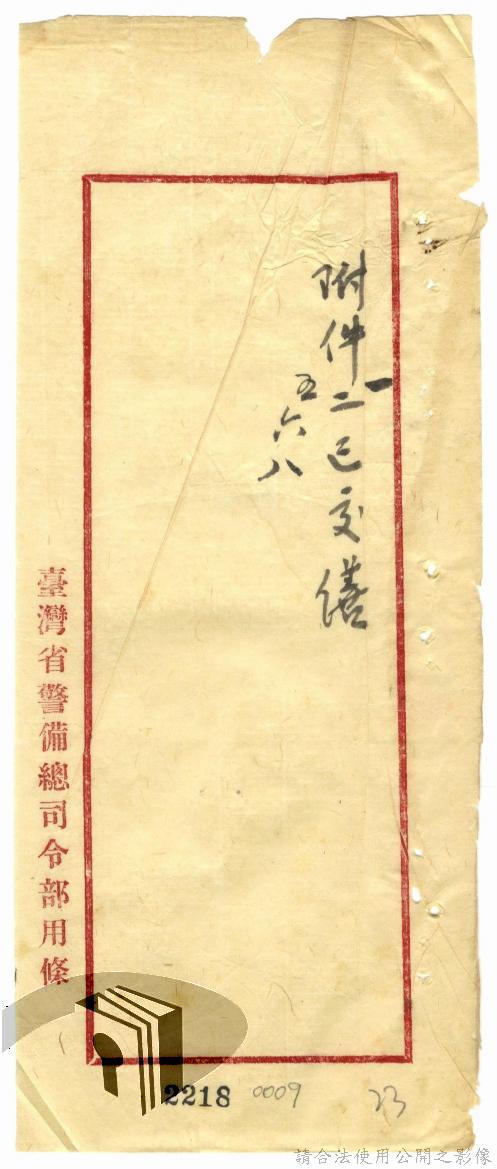 附件一二已交繕
五六八
臺灣省警備總司令部用條
2218 0009 23
請合法使用公開之影像